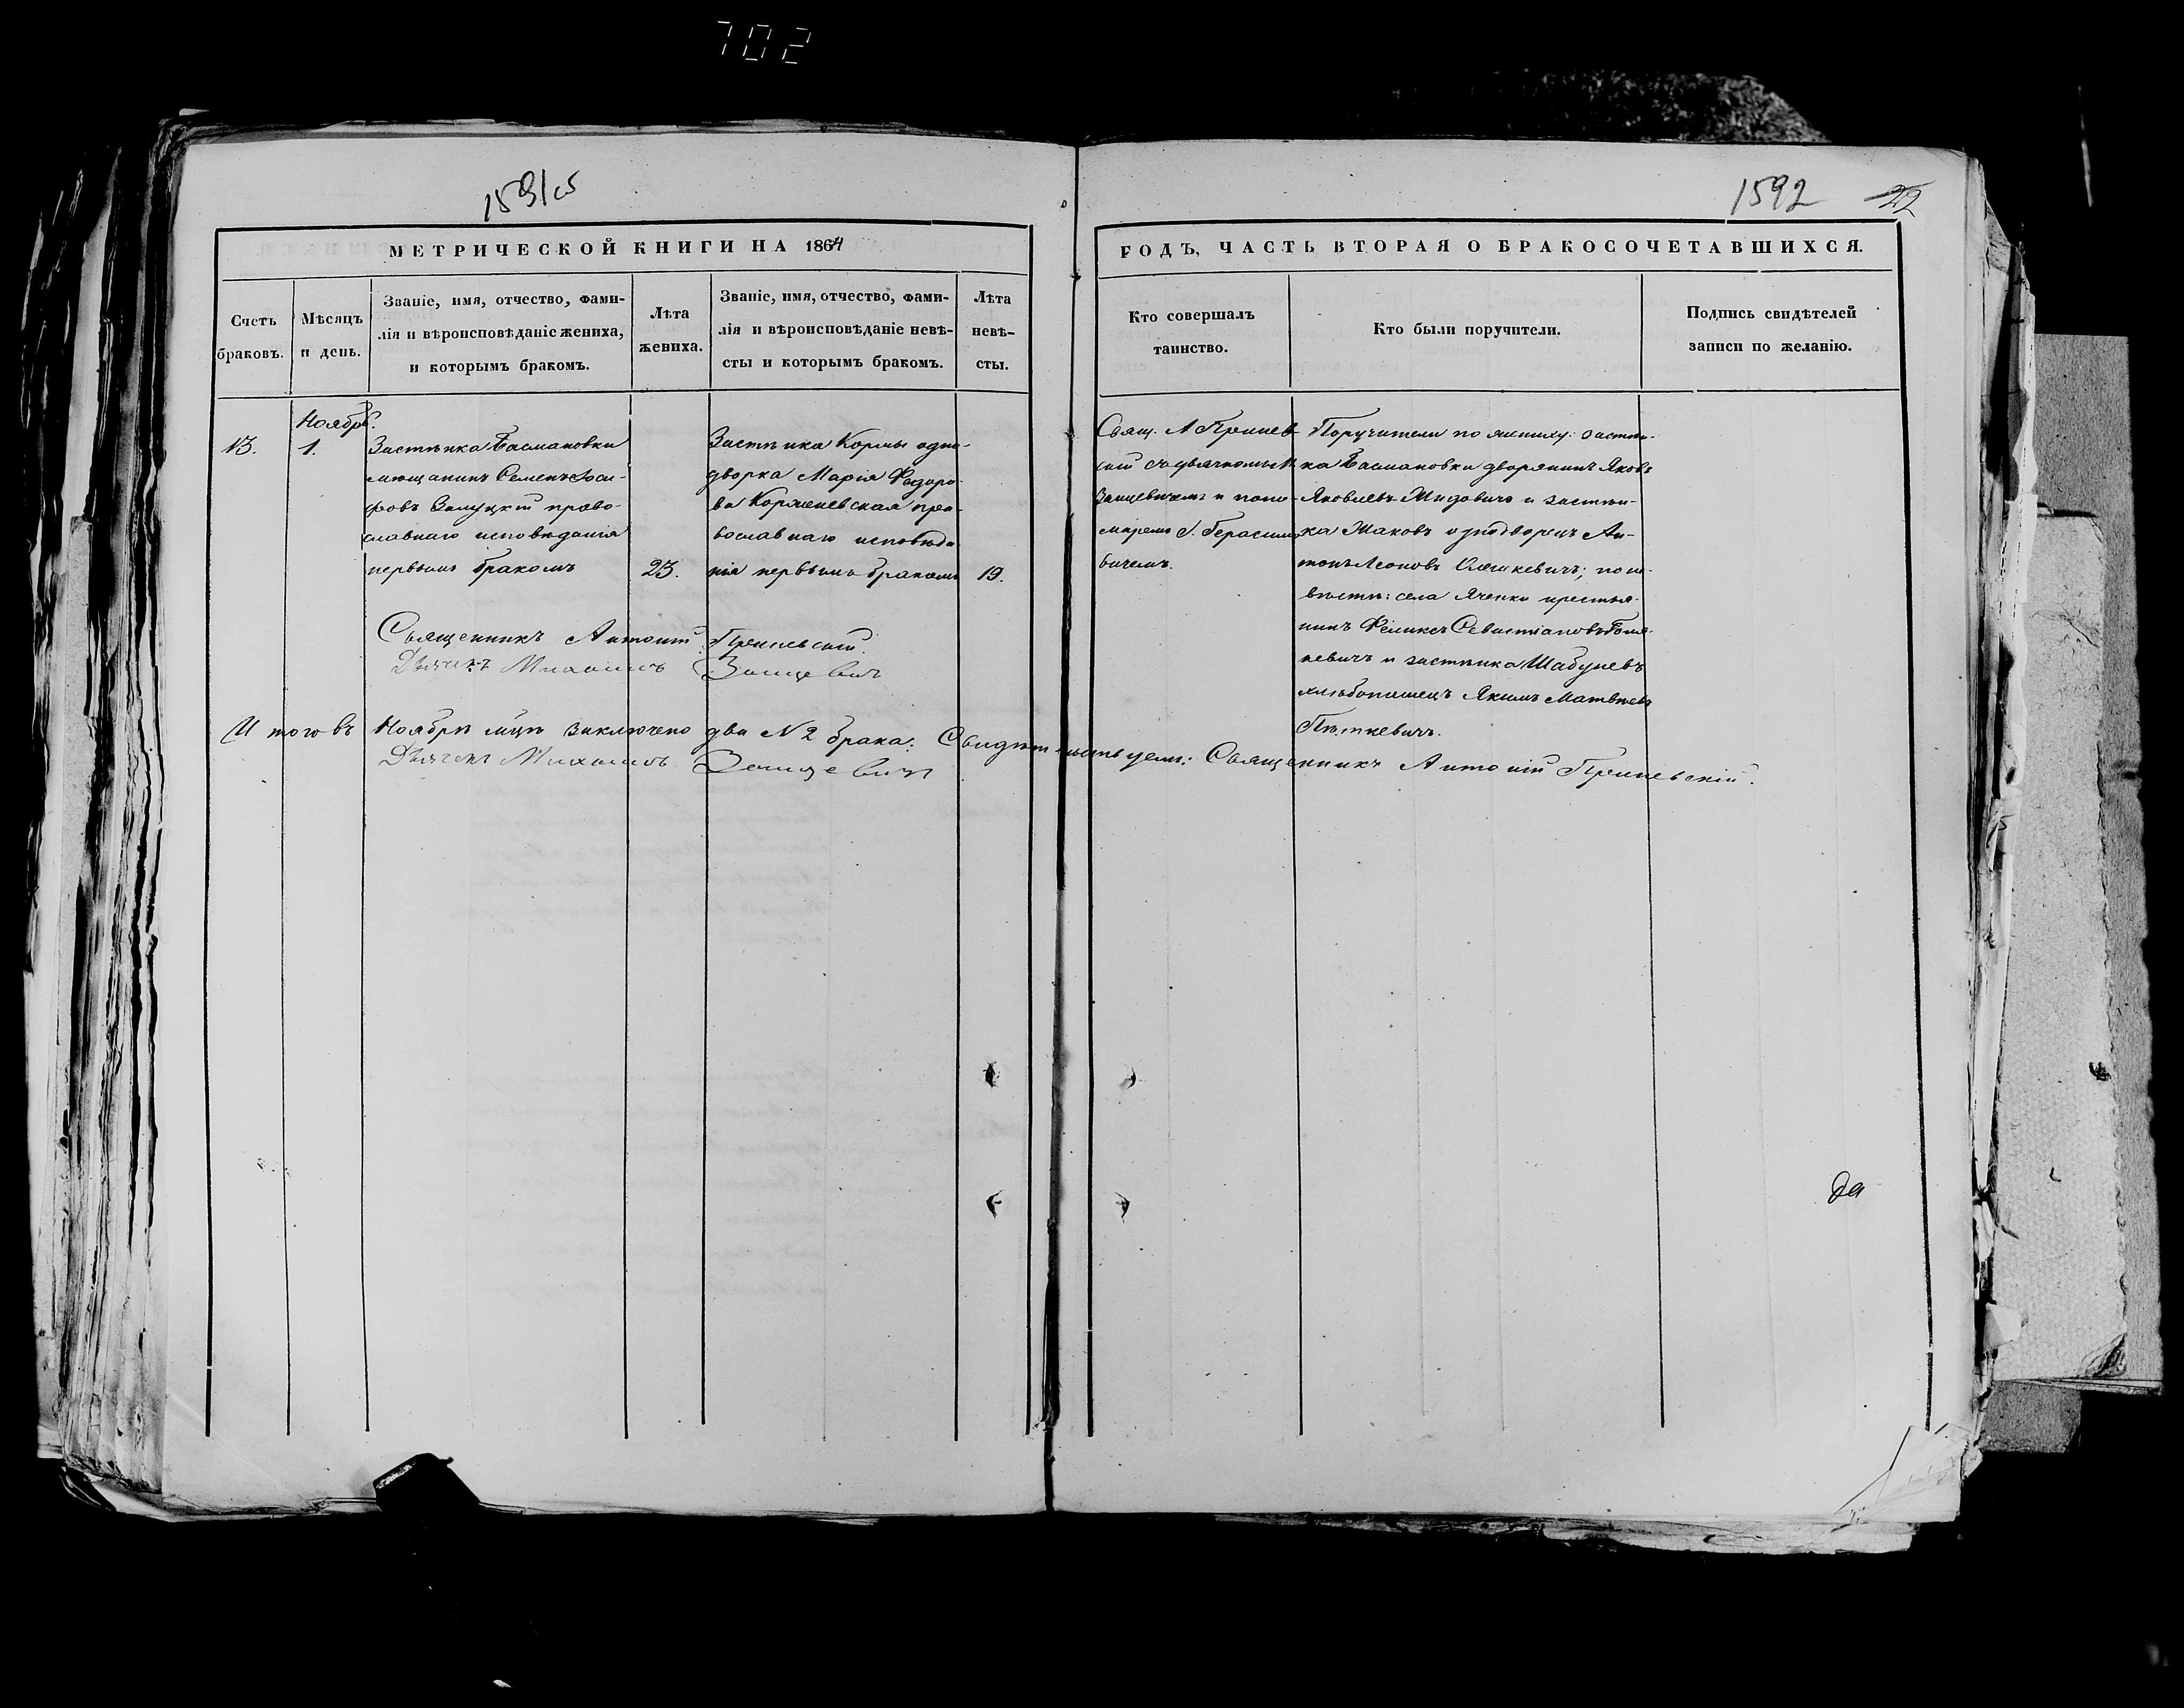 702
1591 об
1592 22
МЕТРИЧЕСКОЙ КНИГИ НА 1864
ГОДЪ, ЧАСТЬ ВТОРАЯ О БРАКОСОЧЕТАВШИХСЯ.
Счетъ
браковъ.
Мѣсяцъ
и день.
Званіе, имя, отчество, фами-
лія и вѣроисповѣданіе жениха,
и которымъ бракомъ.
Лѣта
жениха.
Званіе, имя, отчество, фами-
лія и вѣроисповѣданіе невѣ-
сты и которымъ бракомъ.
Лѣта
невѣ-
сты.
Кто совершалъ
таинство.
Кто были поручители.
Подпись свидѣтелей
записи по желанію.
13.
Ноябрь.
1.
Застѣнка Басмановки
мѣщанинъ Семенъ Іоси-
фовъ Залуцкій право-
славнаго исповѣданія
первымъ бракомъ
23.
Застѣнка Кормы одно-
дворка Марія Федоро-
ва Корженевская пра-
вославнаго исповѣда-
нія первымъ бракомъ
19.
Свящ. А Гриневъ-
скій съ дьячкомъ М
Заицевичемъ и поно-
маремъ І. Герасимо-
вичемъ.
Поручители по жениху: застѣн-
ка Басмановки дворянинъ Яковъ
Яковлевъ и застѣн-
ка Жаковъ однодворецъ Ан-
тонъ Леоновъ по не-
вѣстѣ: села Яченки крестья-
нинъ Феликсъ Севастіановъ
и застѣнка Шабуневъ
хлѣбопашецъ Якимъ Матвѣевъ
Пѣткевичъ.
Священникъ Антоній Гриневскій.
Дьячекъ Михаилъ Заицевичъ
Итого въ Ноябрѣ мцѣ заключено два № 2 брака. Свидѣтельствуемъ: Священникъ Антоній Гриневскій.
Дьячекъ Михаилъ Заицевичъ
да